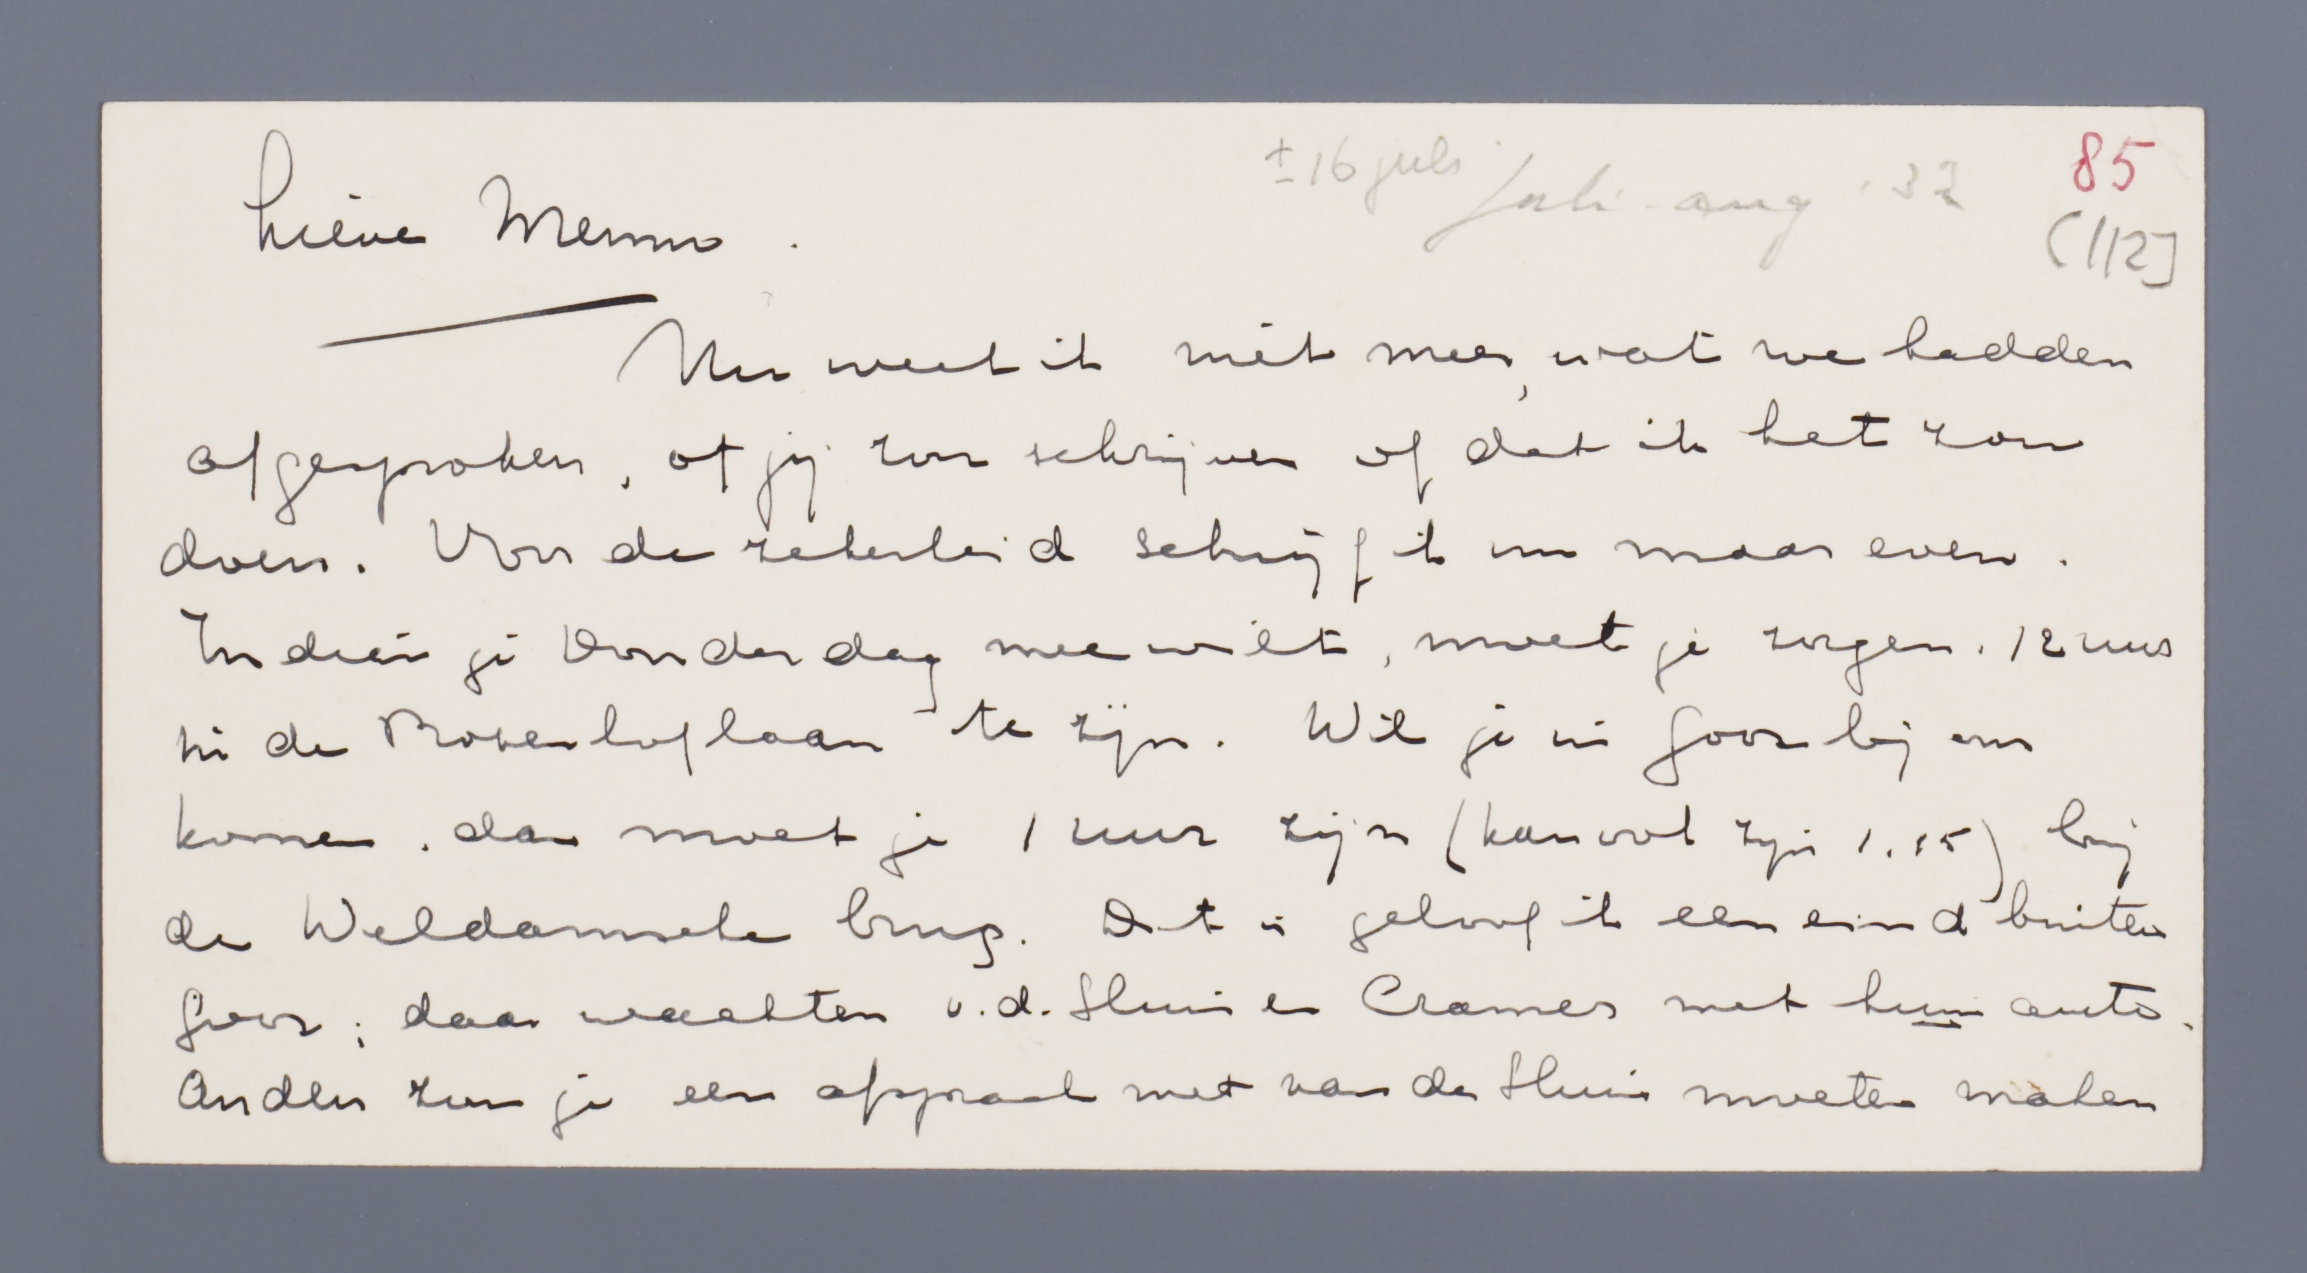 ± 16 juli Juli-aug '32
85
[112]
Lieve Menno.
Nu weet ik niet meer, wat we hadden
afgesproken, of jij zou schrijven of dat ik het zou
doen. Voor de zekerheid schrijf ik nu maar even.
Indien je Donderdag mee wilt, moet je zorgen. 12 uur
in de te zijn. Wil je in Goor bij ons
komen, dan moet je 1 uur zijn (kan ook zijn 1.15) bij
de Weldamsche brug. Dat is geloof ik een eind buiten
Goor; daar wachten v.d. Sluis en Cramer met hun auto.
Anders zou je een afspraak met van der Sluis moeten maken